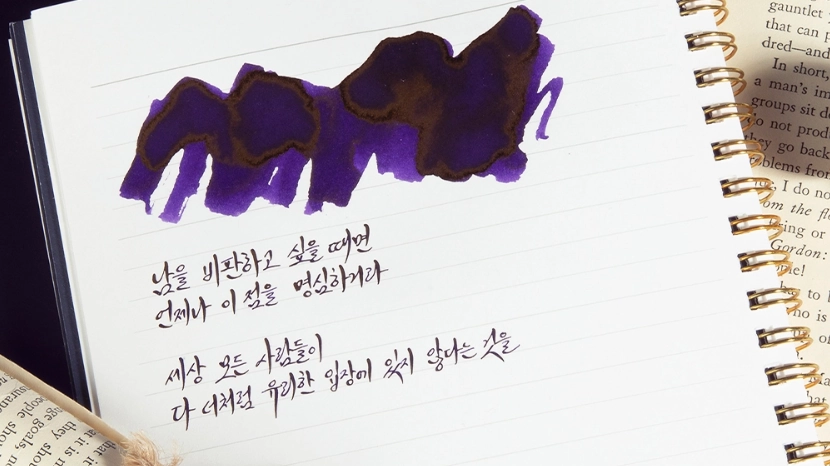 남을 비판하고 싶을 때면
언제나 이 점을 명심하거라
세상 모든 사람들이
다 너처럼 유리한 입장에 있지 않다는 것을
gauntlet
that can
dred—and
In short,
a man's
groups sit
do not
they go back
from
I do
or
Gordon:
to
is
goals,
people
they
that it is